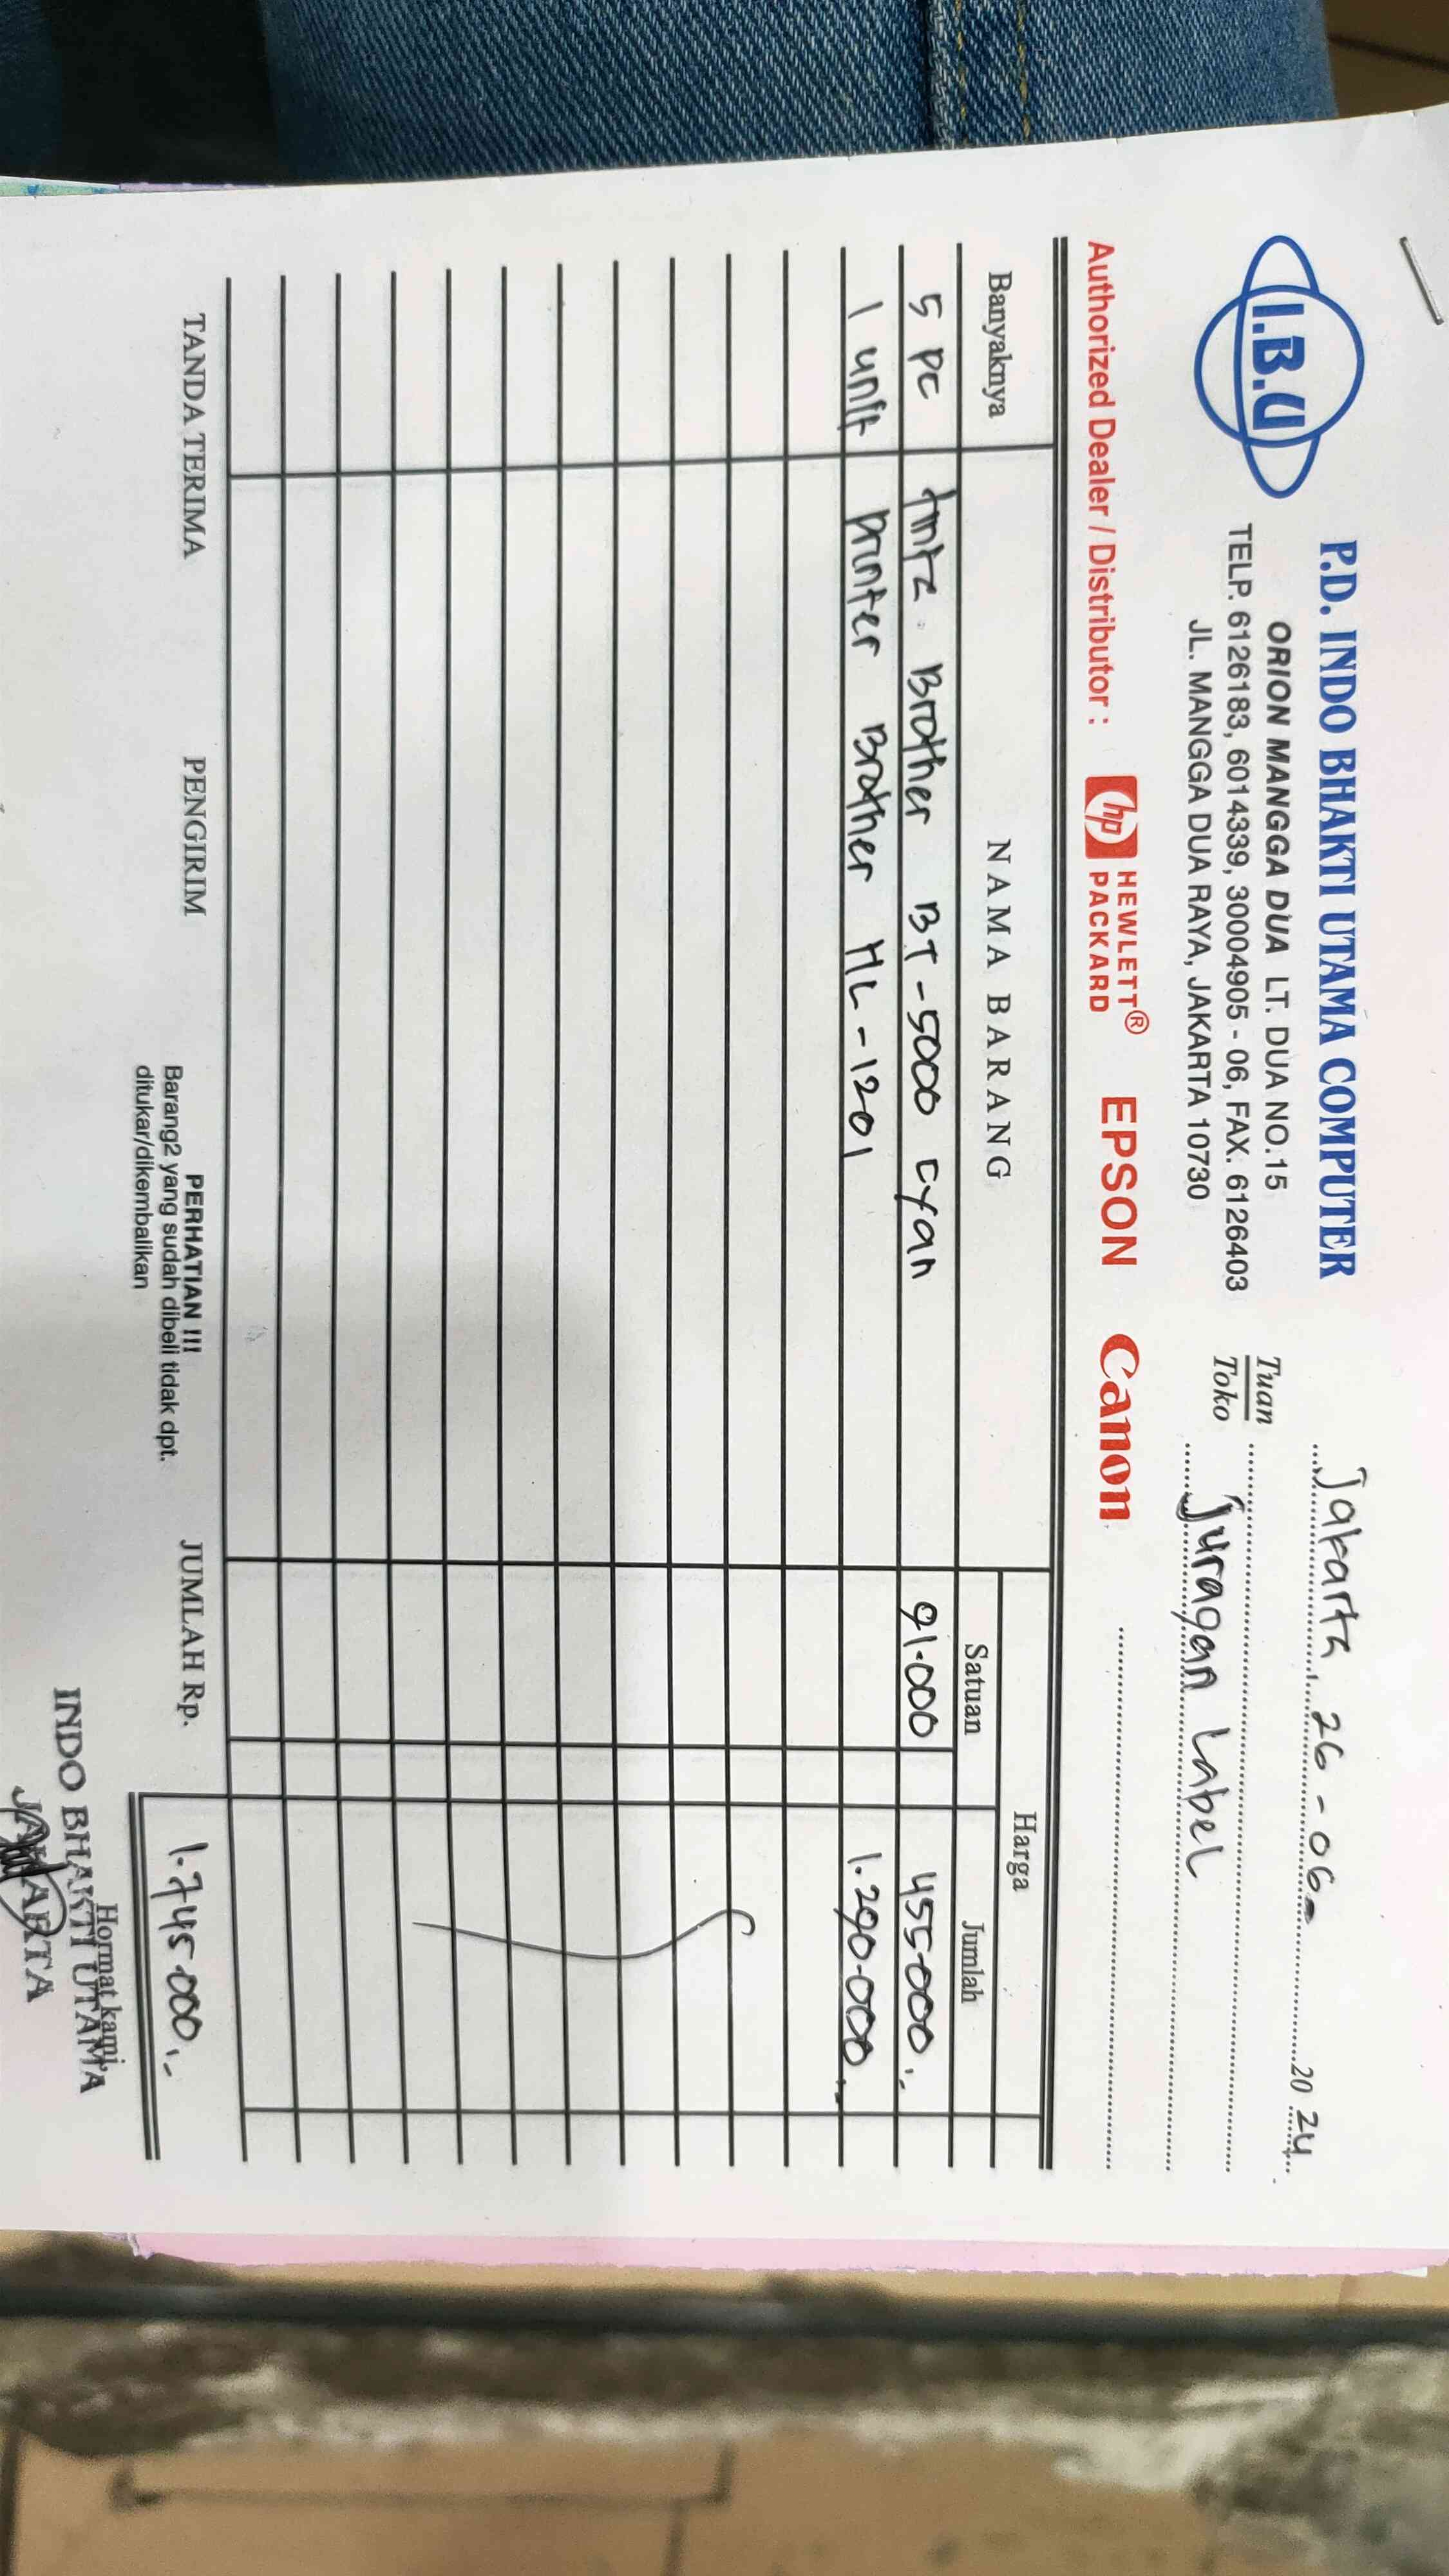 I.B.U
P.D. INDO BHAKTI UTAMA COMPUTER
ORION MANGGA DUA LT. DUA NO.15
TELP. 6126183, 6014339, 30004905 - 06, FAX. 6126403
JL. MANGGA DUA RAYA, JAKARTA 10730
Jakarta, 26-06- 2024
Tuan
Toko
Juragan Label
Authorized Dealer / Distributor : hp HEWLETT® PACKARD EPSON Canon
Banyaknya NAMA BARANG Harga
Satuan Jumlah
5 pc tinta Brother BT-5000 cyan 91.000 455.000.-
1 unit printer Brother HL-1201 1.290.000.-
TANDA TERIMA PENGIRIM JUMLAH Rp. 1.745.000.-
PERHATIAN !!!
Barang2 yang sudah dibeli tidak dpt.
ditukar/dikembalikan
Hormat kami,
INDO BHAKTI UTAMA
JAKARTA